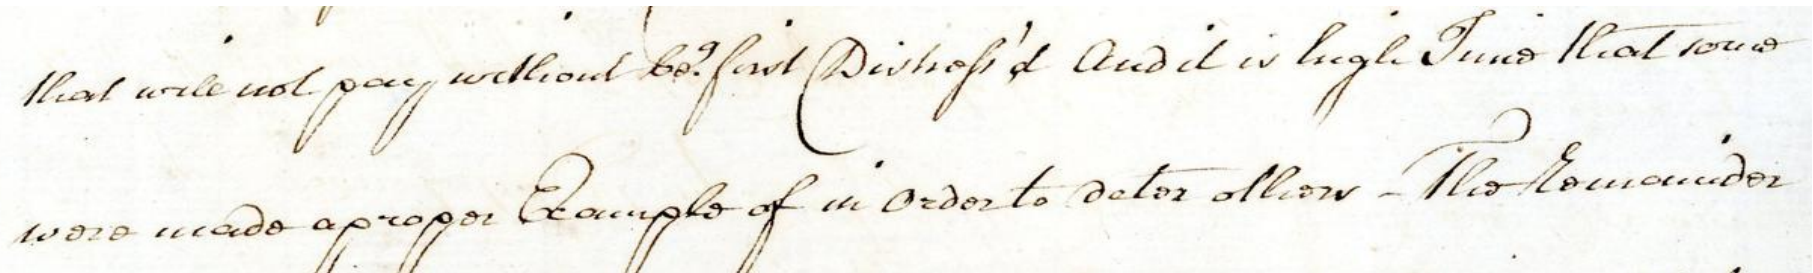 that will not pay without be.g first Distress'd And it is high Time that some
were made a proper Example of in Order to deter others - The Remainder